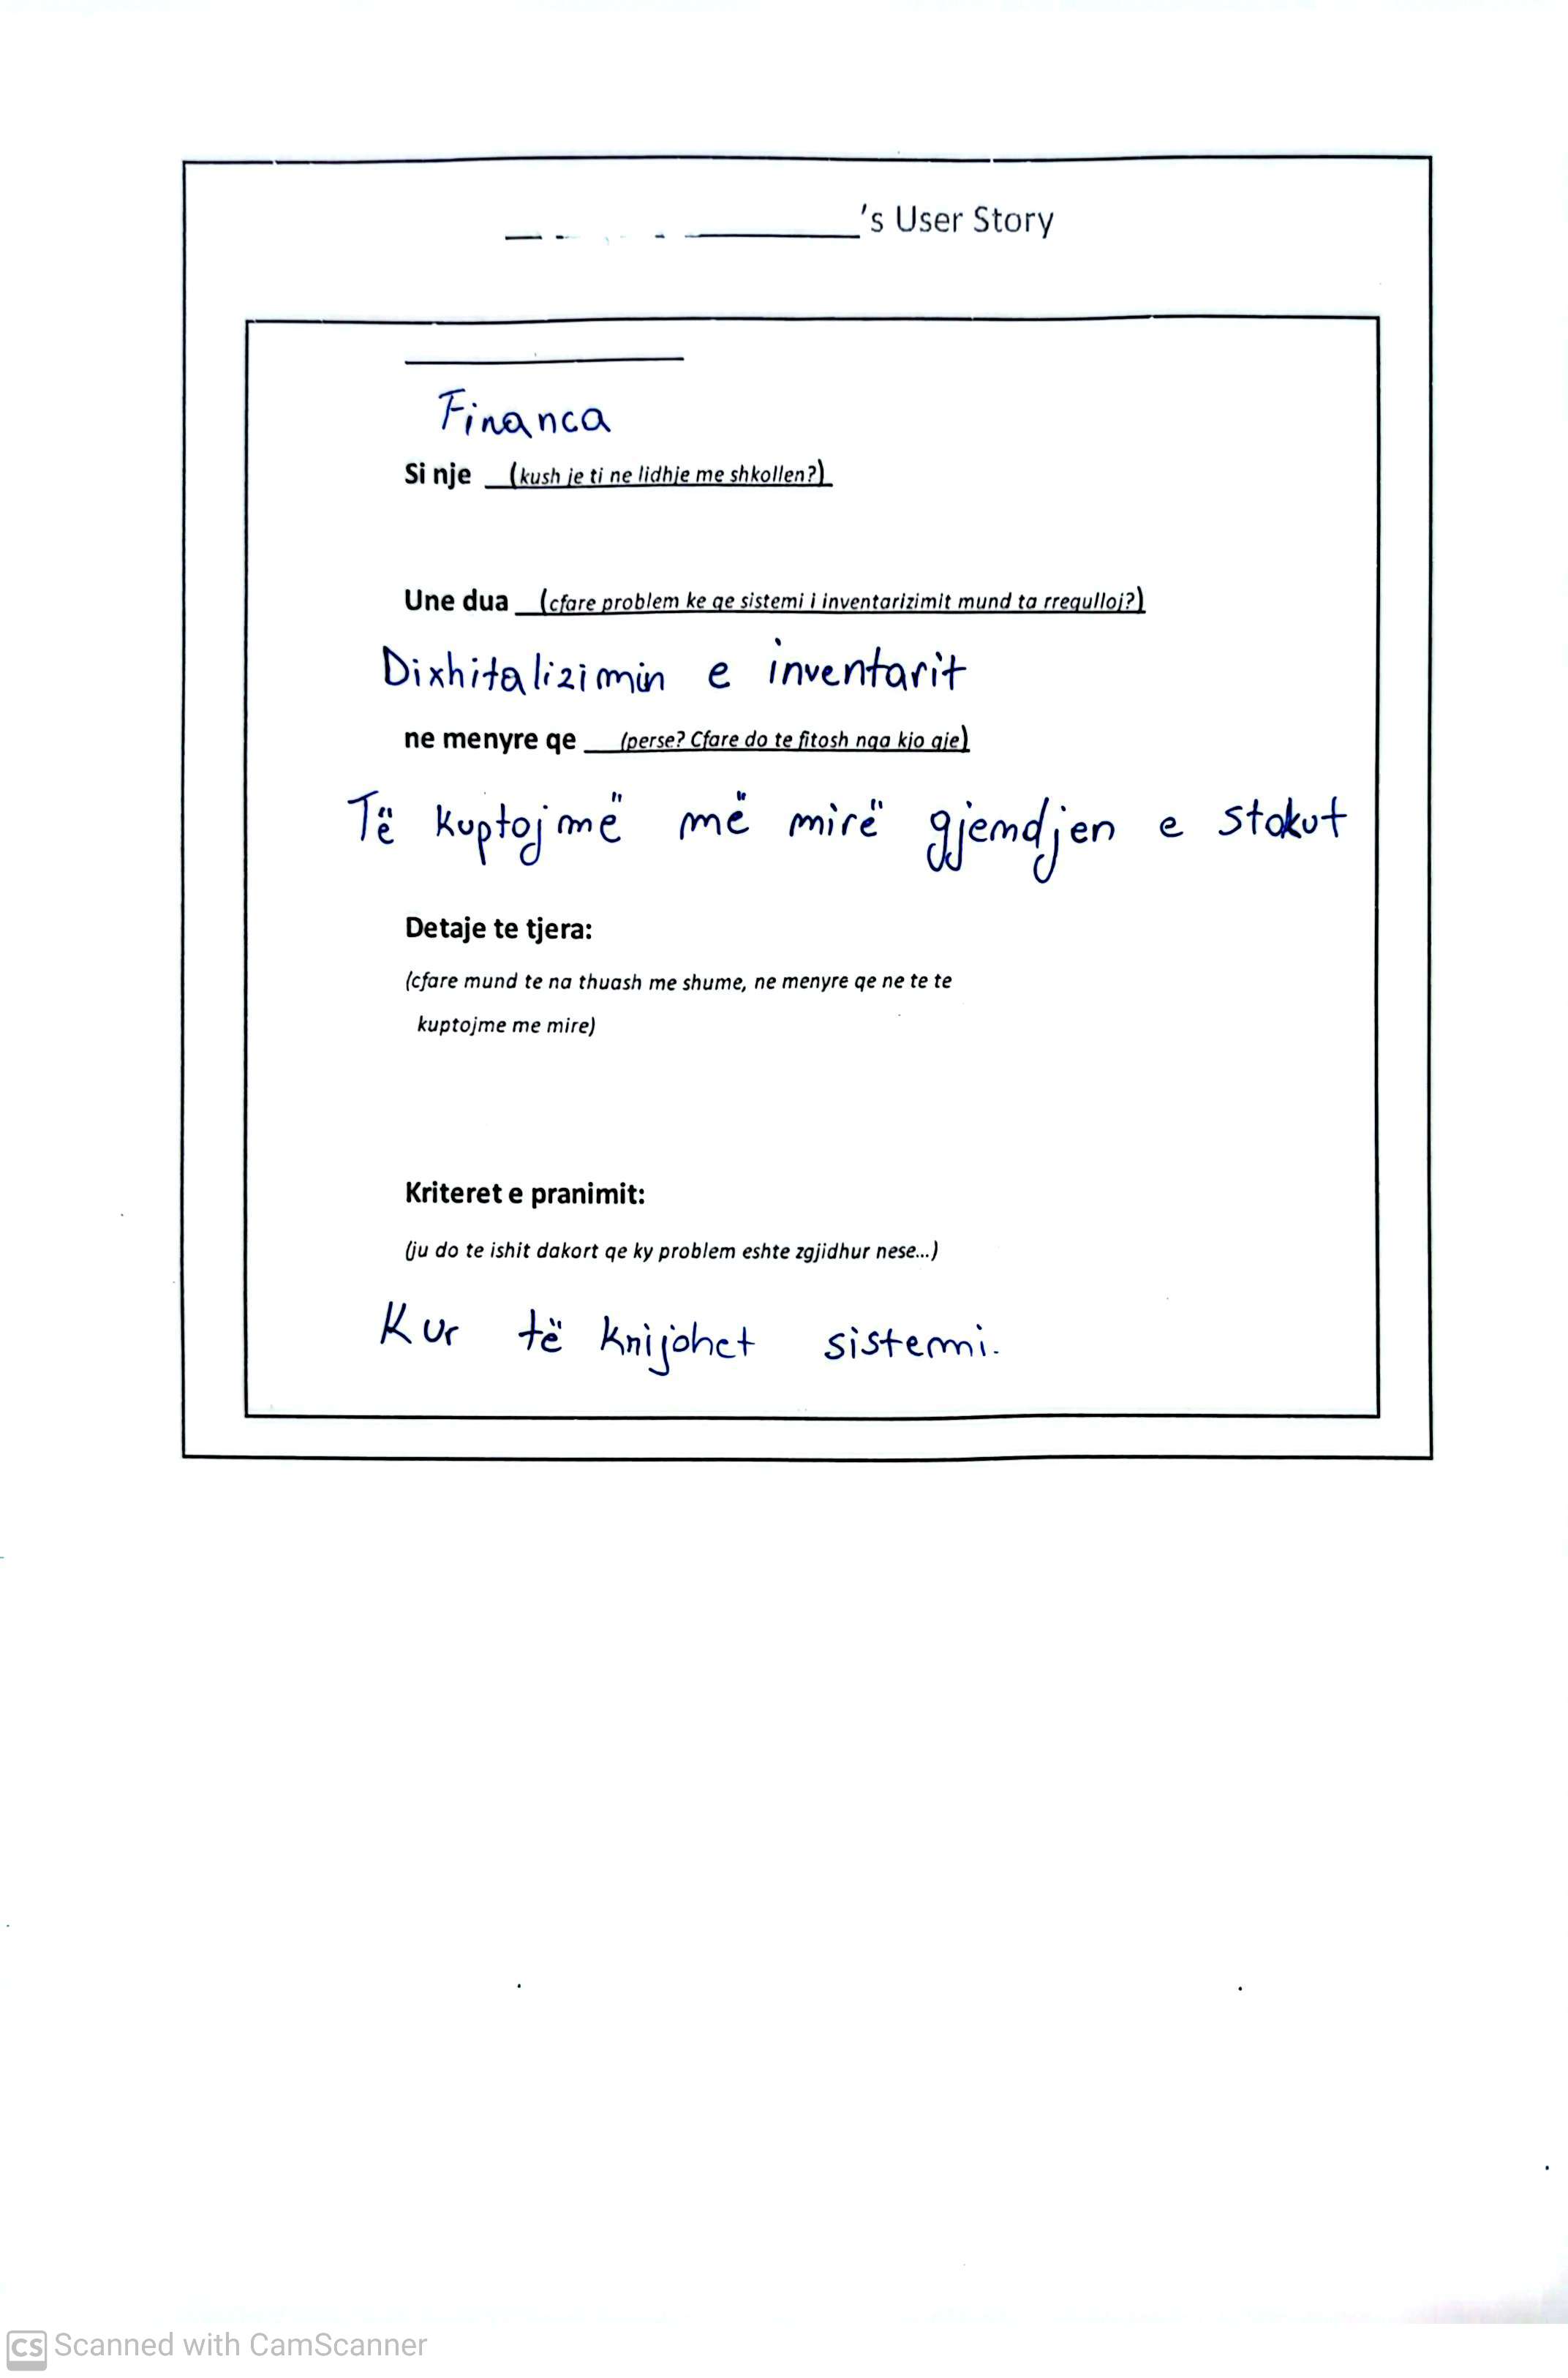 's User Story
Financa
Si nje (kush je ti ne lidhje me shkollen?)
Une dua (cfare problem ke qe sistemi i inventarizimit mund ta rregulloj?)
Dixhitalizimin e inventarit
ne menyre qe (perse? Cfare do te fitosh nga kjo gje)
Të kuptojmë më mirë gjemdjen e stokut
Detaje te tjera:
(cfare mund te na thuash me shume, ne menyre qe ne te te
kuptojme me mire)
Kriteret e pranimit:
(ju do te ishit dakort qe ky problem eshte zgjidhur nese...)
Kur të krijohet sistemi.
CS Scanned with CamScanner